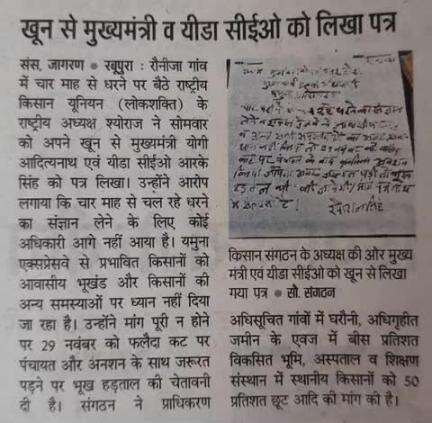 खून से मुख्यमंत्री व यीडा सीईओ को लिखा पत्र
संस, जागरण ● रबूपुरा : रौनीजा गांव
में चार माह से धरने पर बैठे राष्ट्रीय
किसान यूनियन (लोकशक्ति) के
राष्ट्रीय अध्यक्ष श्योराज ने सोमवार
को अपने खून से मुख्यमंत्री योगी
आदित्यनाथ एवं यीडा सीईओ आरके
सिंह को पत्र लिखा। उन्होंने आरोप
लगाया कि चार माह से चल रहे धरने
का संज्ञान लेने के लिए कोई
अधिकारी आगे नहीं आया है। यमुना
एक्सप्रेसवे से प्रभावित किसानों को
आवासीय भूखंड और किसानों की
अन्य समस्याओं पर ध्यान नहीं दिया
जा रहा है। उन्होंने मांग पूरी न होने
पर 29 नवंबर को फलैदा कट पर
पंचायत और अनशन के साथ जरूरत
पड़ने पर भूख हड़ताल की चेतावनी
दी है। संगठन ने प्राधिकरण
किसान संगठन के अध्यक्ष की ओर मुख्य
मंत्री एवं यीडा सीईओ को खून से लिखा
गया पत्र ● सौ. संगठन
अधिसूचित गांवों में घरौनी, अधिगृहीत
जमीन के एवज में बीस प्रतिशत
विकसित भूमि, अस्पताल व शिक्षण
संस्थान में स्थानीय किसानों को 50
प्रतिशत छूट आदि की मांग की है।